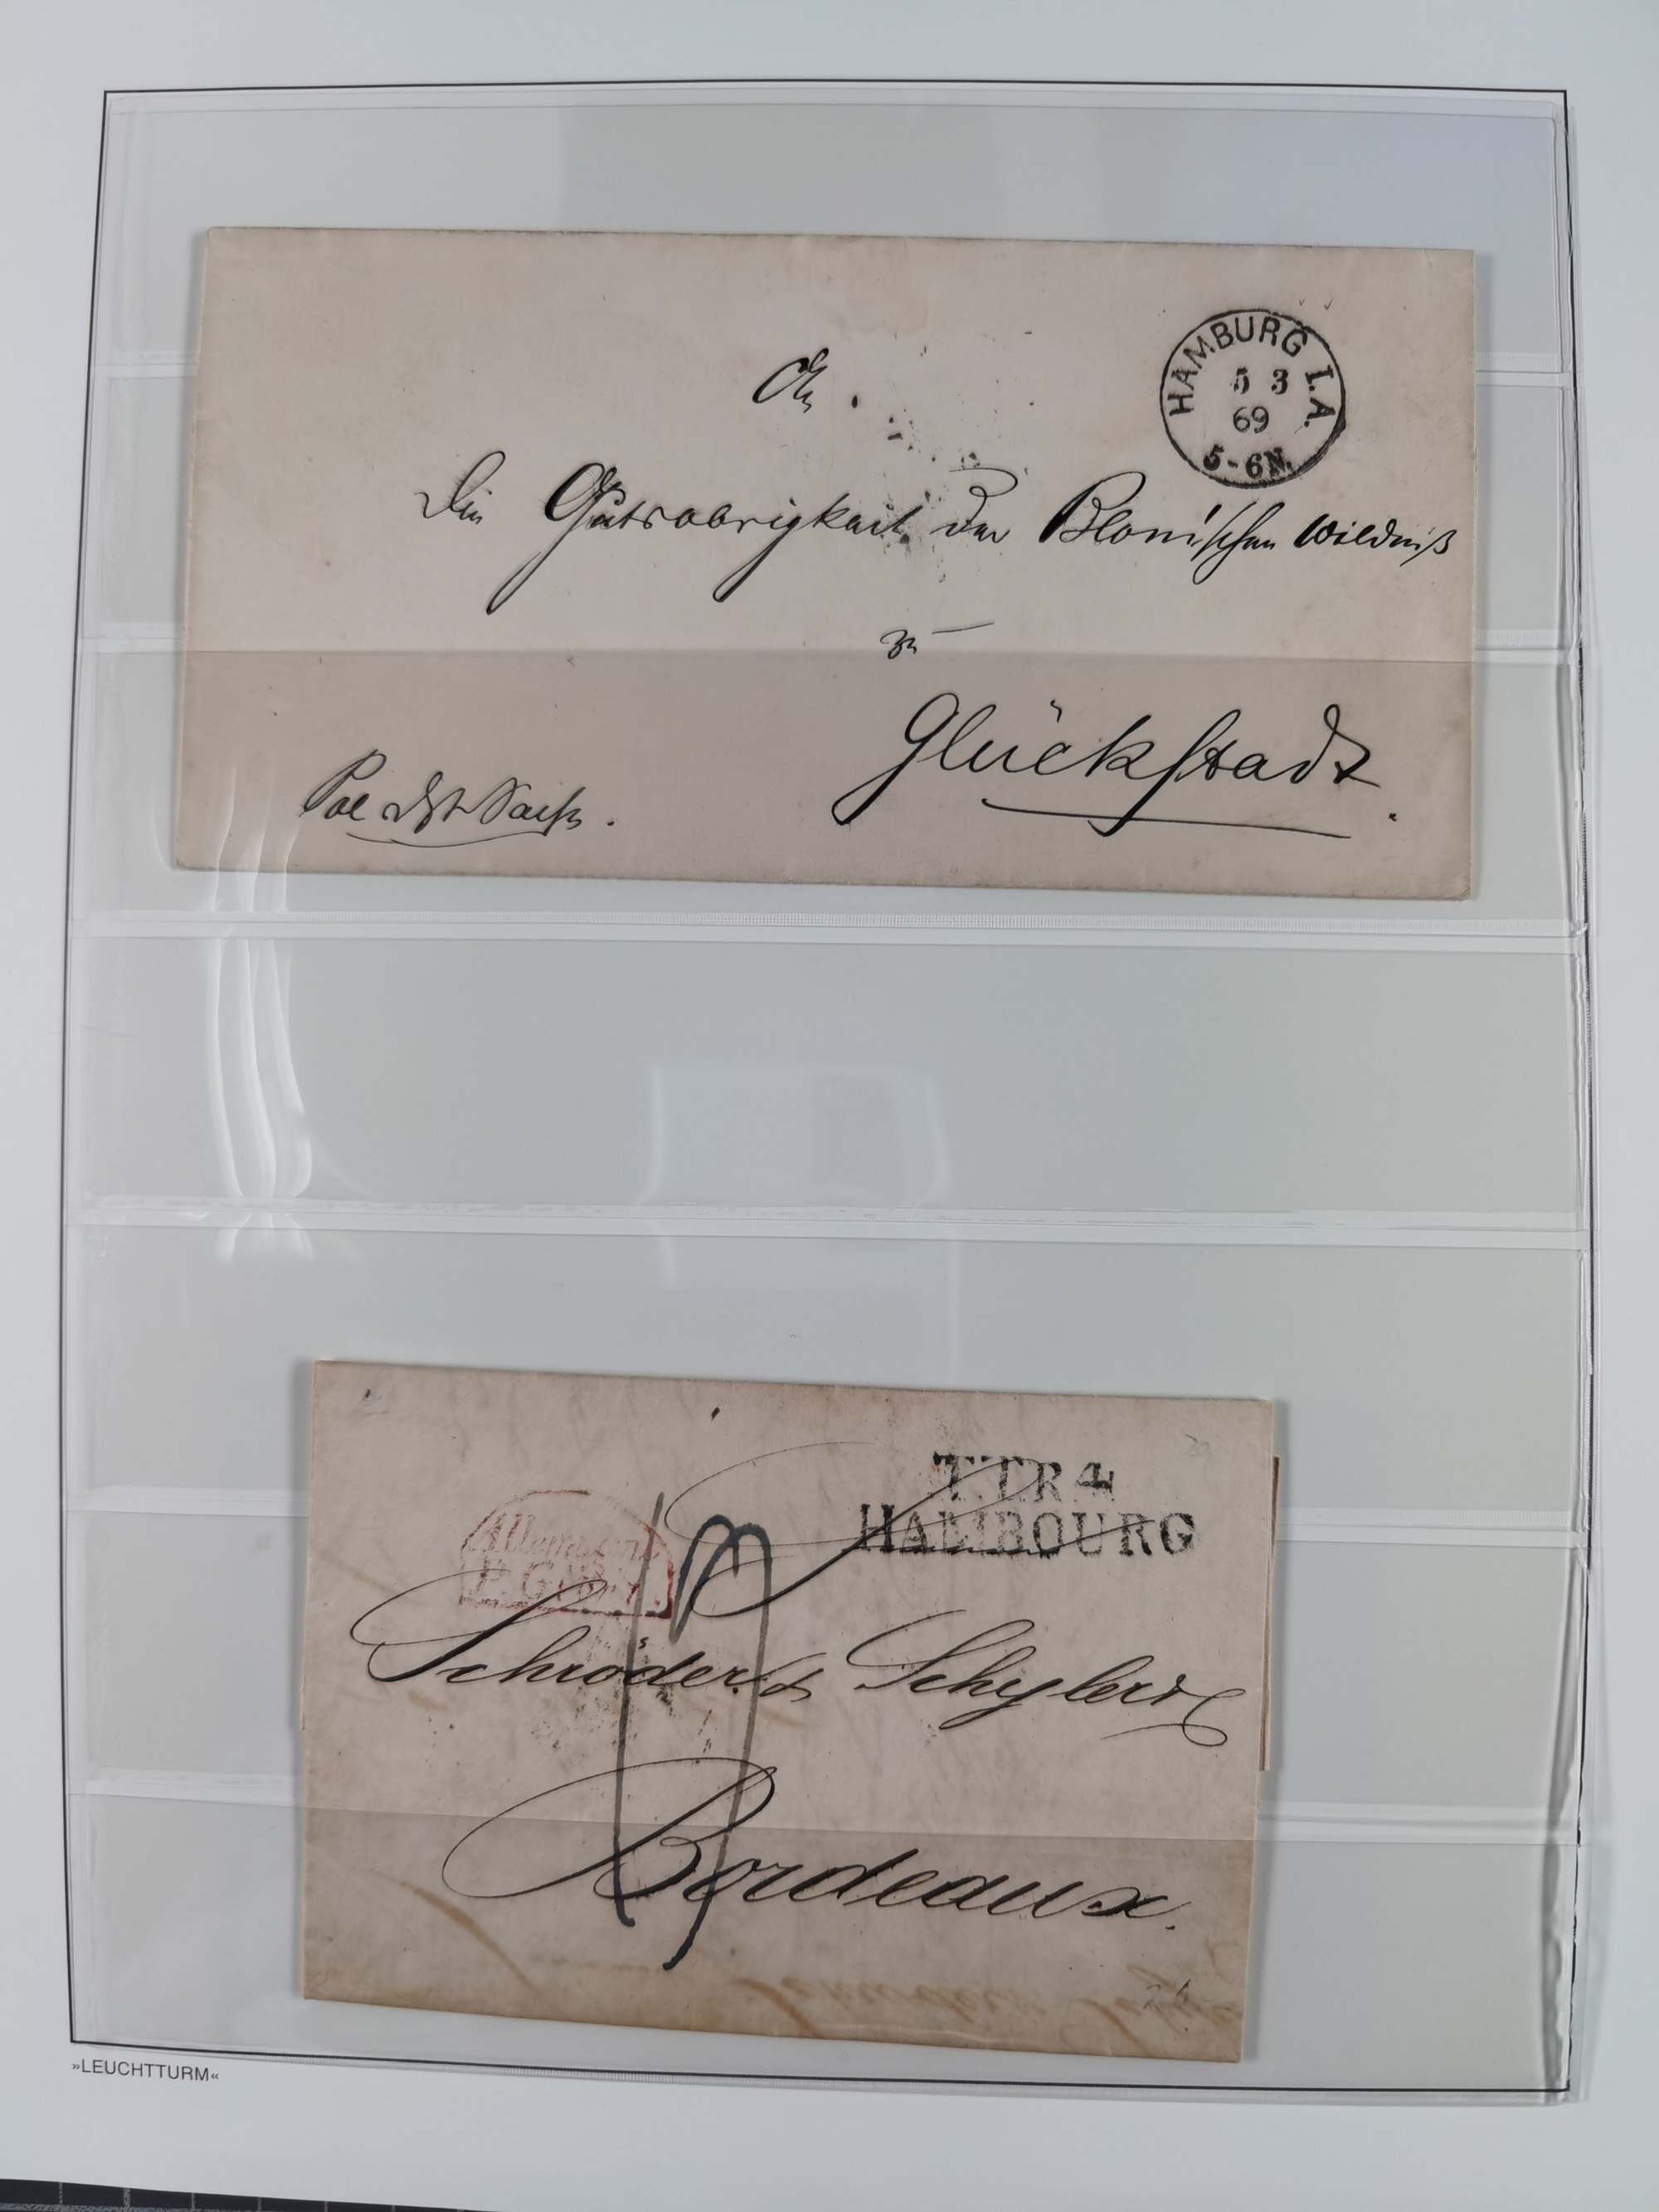 HAMBURG I.A.
5 3
69
5-6N.
An
Die Gutsobrigkeit der Blomischen Wildniß
zu
Glückstadt.
T.T.R.4
HAMBOURG
Allemagne
P. Givet
Schröder & Schyler &
Bordeaux.
»LEUCHTTURM«